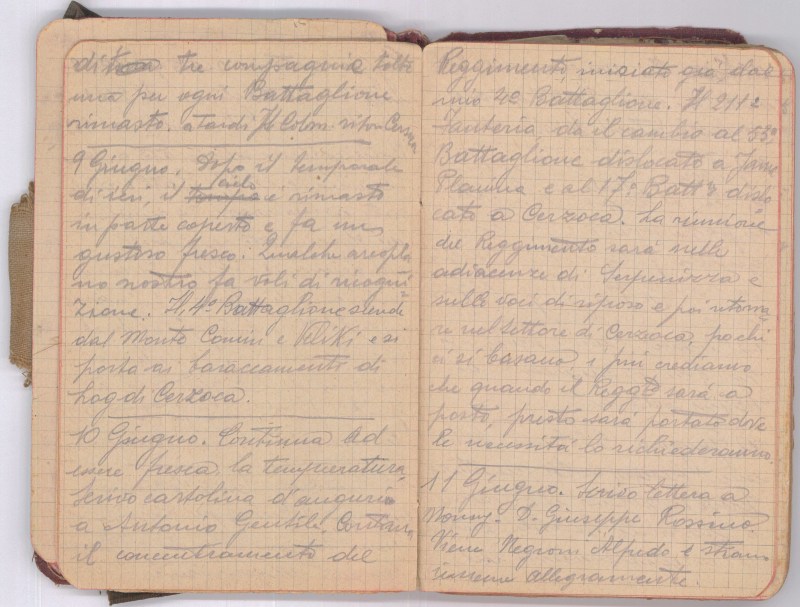 di tre compagnie tolte
una per ogni Battaglione
rimasto. a tardi Il Colon. rit
9 Giugno. Dopo il temporale
di ieri, il cielo è rimasto
in parte coperto e fa un
gustoso fresco. Qualche aeropla
no nostro fa voli di ricogni
zione. Il 4º Battaglione scende
dal Monte e Veliki e si
porta ai baraccamenti di
Log di Cerzoca.
10 Giugno. Continua ad
essere fresca la temperatura
Scrivo cartolina d'augurio
a Antonio Gentili. Continua
il concentramento del
Reggimento iniziato già dal
mio 4º Battaglione. Il 211º
Fanteria da il cambio al 53º
Battaglione dislocato a
Planina e al 17º Battº dislo
cato a Cerzoca. La riunione
del Reggimento sarà nelle
adiacenze di
sulle voci di riposo e poi ritorna
re nel settore di Cerzoca, pochi
ci si basano, e più crediamo
che quando il Reggto sarà a
posto, presto sarà portato dove
le necessità lo richiederanno.
11 Giugno. Scrivo lettera a
Monsig. D. Giuseppe Rossino.
Viene Negroni Alfredo e stiam
insieme allegramente.